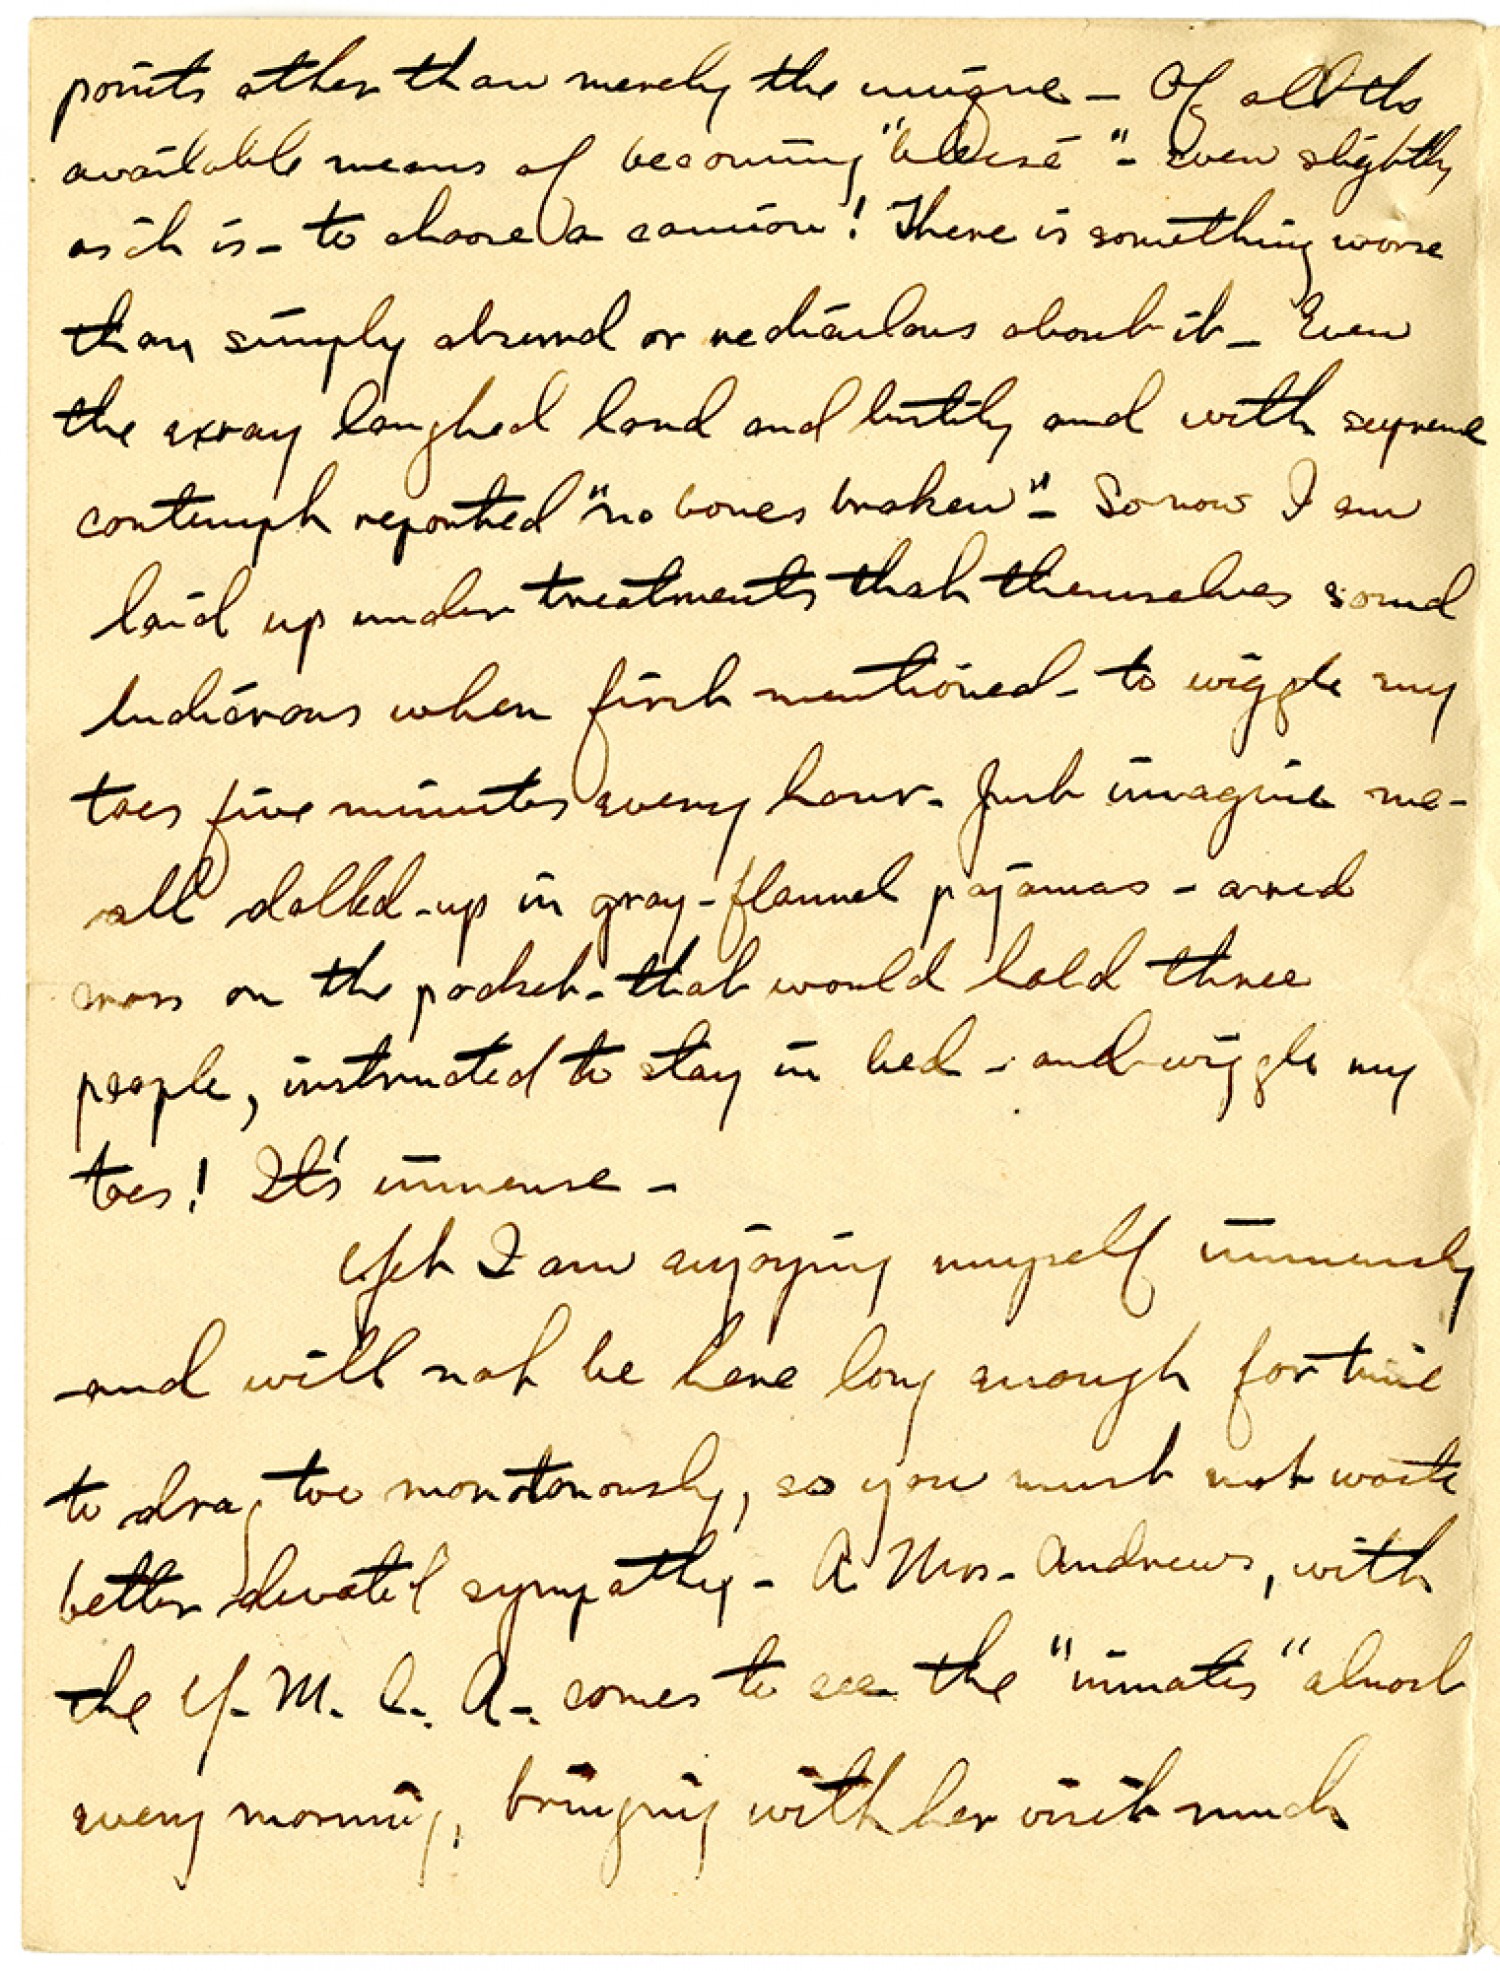 points other than merely the unique – Of all the
available means of becoming "blessé" – even slightly
as it is – to choose a camion! There is something worse
than simply absurd or rediculous about it – Even
the xray laughed loud and lustily and with supreme
contempt reported "no bones broken" – So now I am
laid up under treatments that themselves sound
ludicrous when first mentioned – to wiggle my
toes five minutes every hour. Just imagine me –
all dolled-up in gray-flannel pajamas – a red
cross on the pocket – that would hold three
people, instructed to stay in bed – and wiggle my
toes! It's immense –
Yet I am enjoying myself immensely
and will not be here long enough for time
to drag too monotonously, so you must not waste
better devoted sympathy – A Mrs. Andrews, with
the Y. M. C. A. comes to see the "inmates" almost
every morning, bringing with her visit much